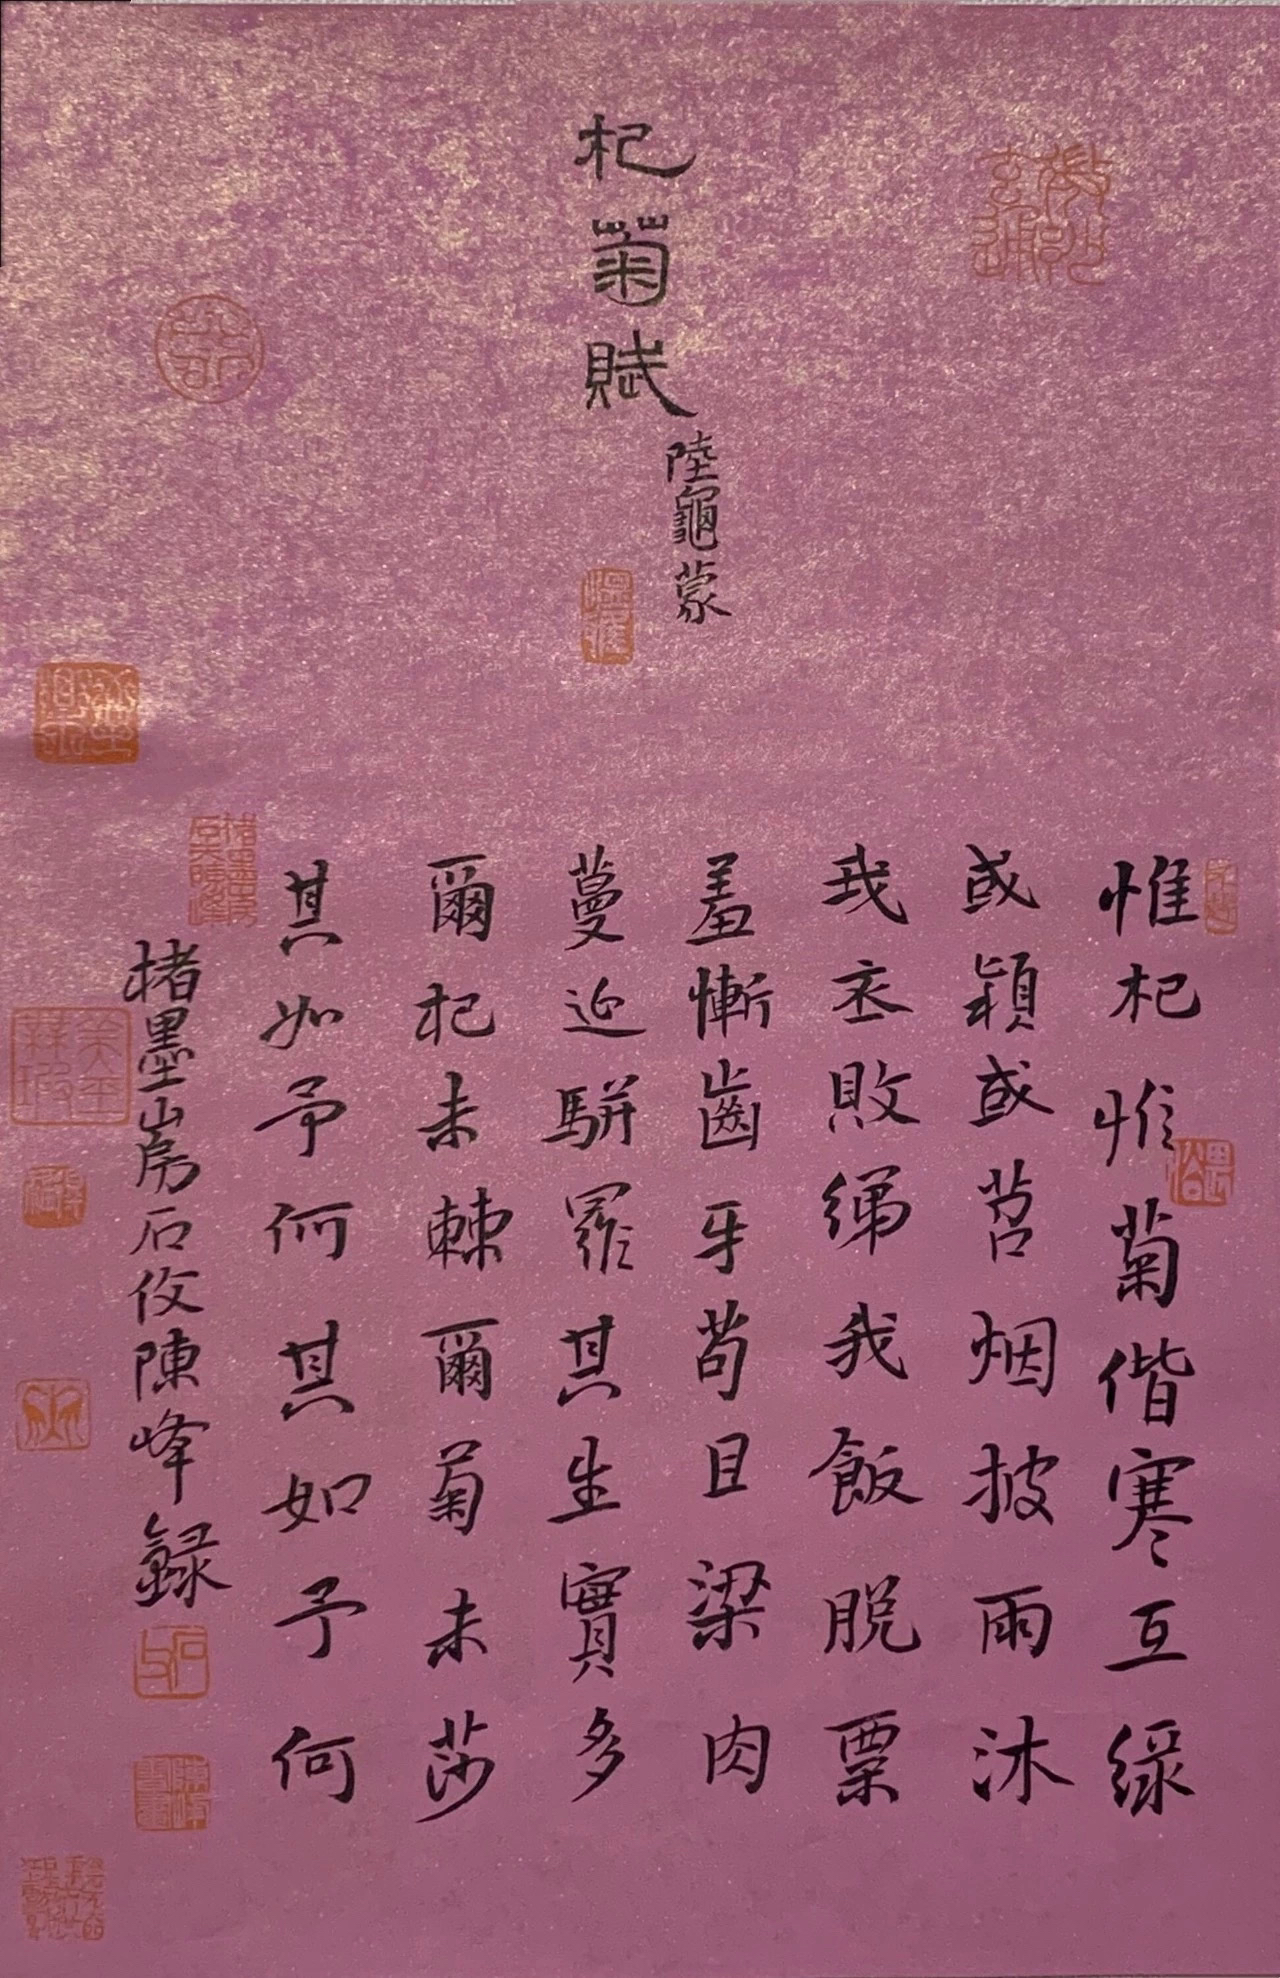 杞菊賦
陸龜蒙
惟杞惟菊偕寒互綠
或穎或苕烟披雨沐
我衣敗綈我飯脫粟
羞慚齒牙苟且梁肉
蔓延駢羅其生實多
爾杞未棘爾菊未莎
其如予何其如予何
楮墨山房石伩陳峰錄